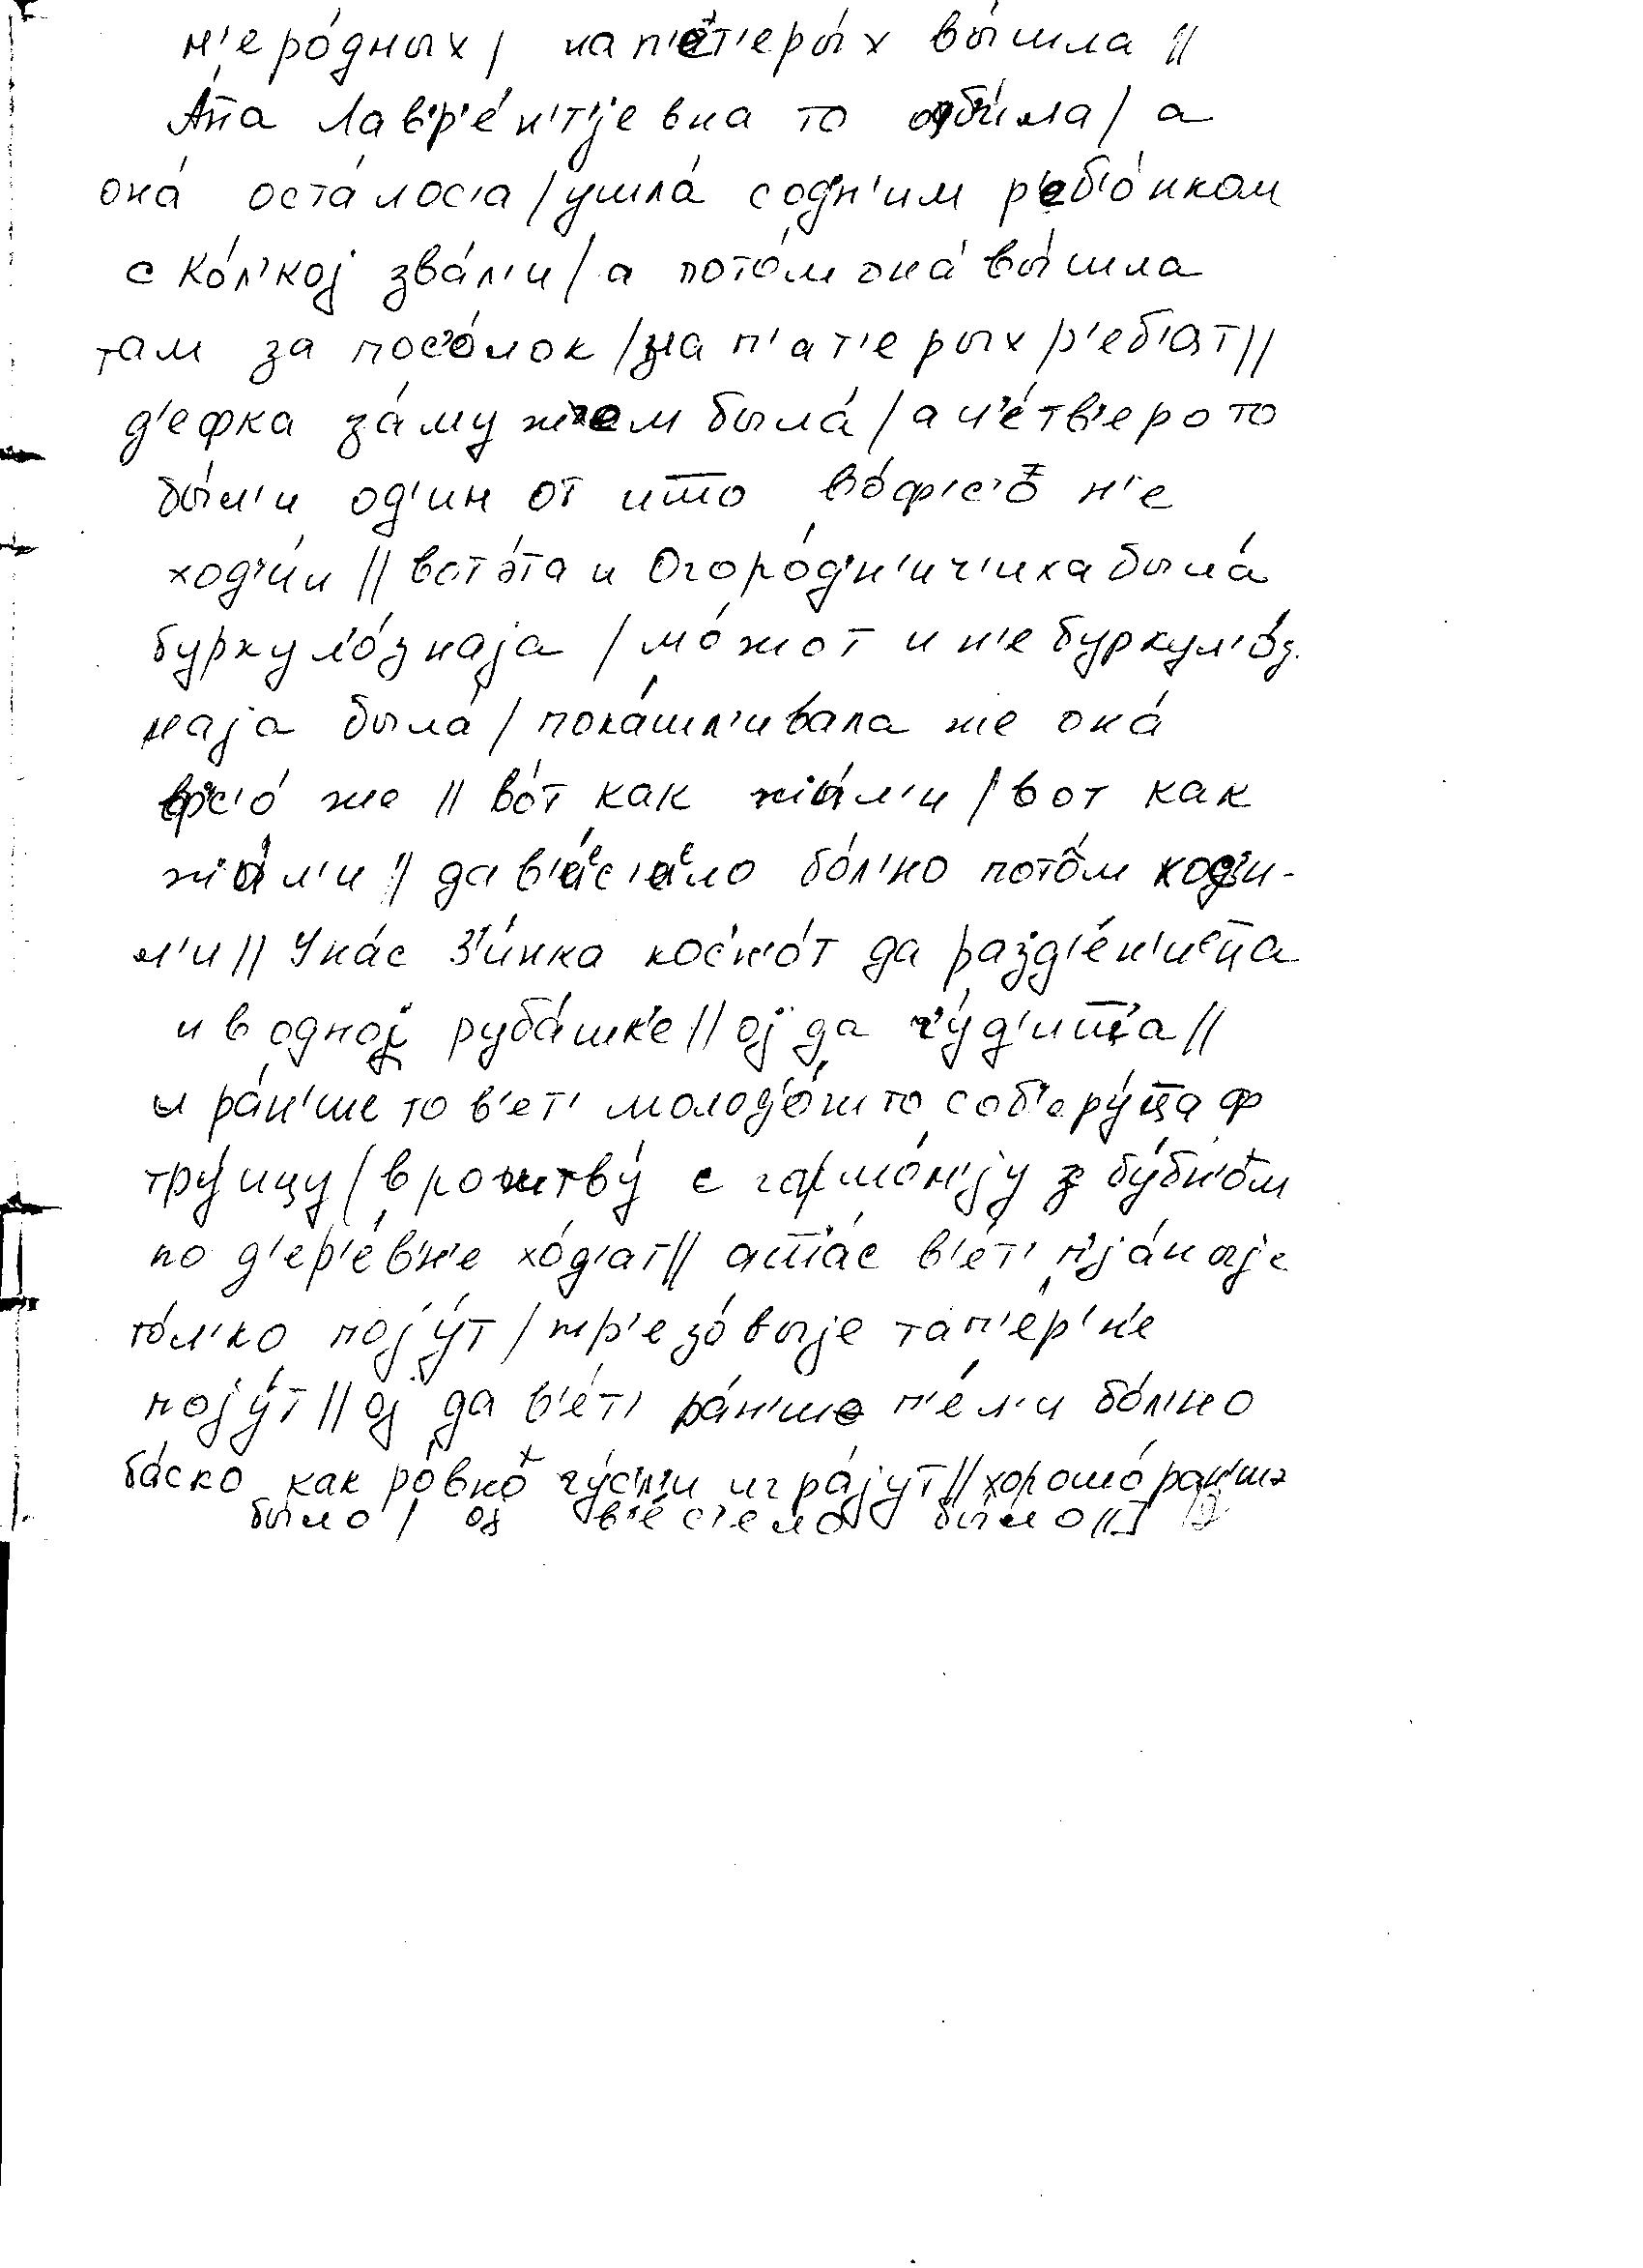 н'еро́дных / нап'ат'еры́х вы́шла //
А́н̄а Лав'р'е́н'т'јевна то была / а
она́ оста́лос'а / ушла́ содн'им р'еб'о́нком
с Ко́л'кој зва́л'и / а пото́м она́ вы́шла
там за пос'о́лок / на п'ат'ерых р'еб'ат //
д'ефка за́мужем была́ / а ч'е́тв'еро то
бы́л'и од'ин от што во́фс'о н'е
ход'и́л // вот э́та и Огоро́д'н'ич'иха была́
буркул'о́знаја / мо́жот и н'е буркул'о́з-
наја была́ / пока́шл'ивала же она́
фс'о́ же // во́т как жы́л'и / вот как
жы́л'и // да в'е́с'ело бо́л'но пото́м ход'и-
л'и // У на́с З'и́нка кос'н'о́т да разд'е́н'иеца
и в одној руба́шк'е // ој да ч'у́д'иш̄а //
и ра́н'ше то в'ет' молод'о́ш то соб'еру́ц̄а ф
тру́ицу / в рожтву́ с гармо́н'ју з бу́бном
по д'ер'е́вн'е хо́д'ат // аш̄а́с в'е́т' п'ја́ныје
то́л'ко пој у́т / тр'езо́выје тап'е́р' н'е
пој у́т // ој да в'е́т' ра́н'ше п'е́л'и бо́л'но
ба́ско как ро́вно гу́сл'и игра́јут // хорошо́ ран'ше
бы́ло / ој в'е́с'ело бы́ло //]